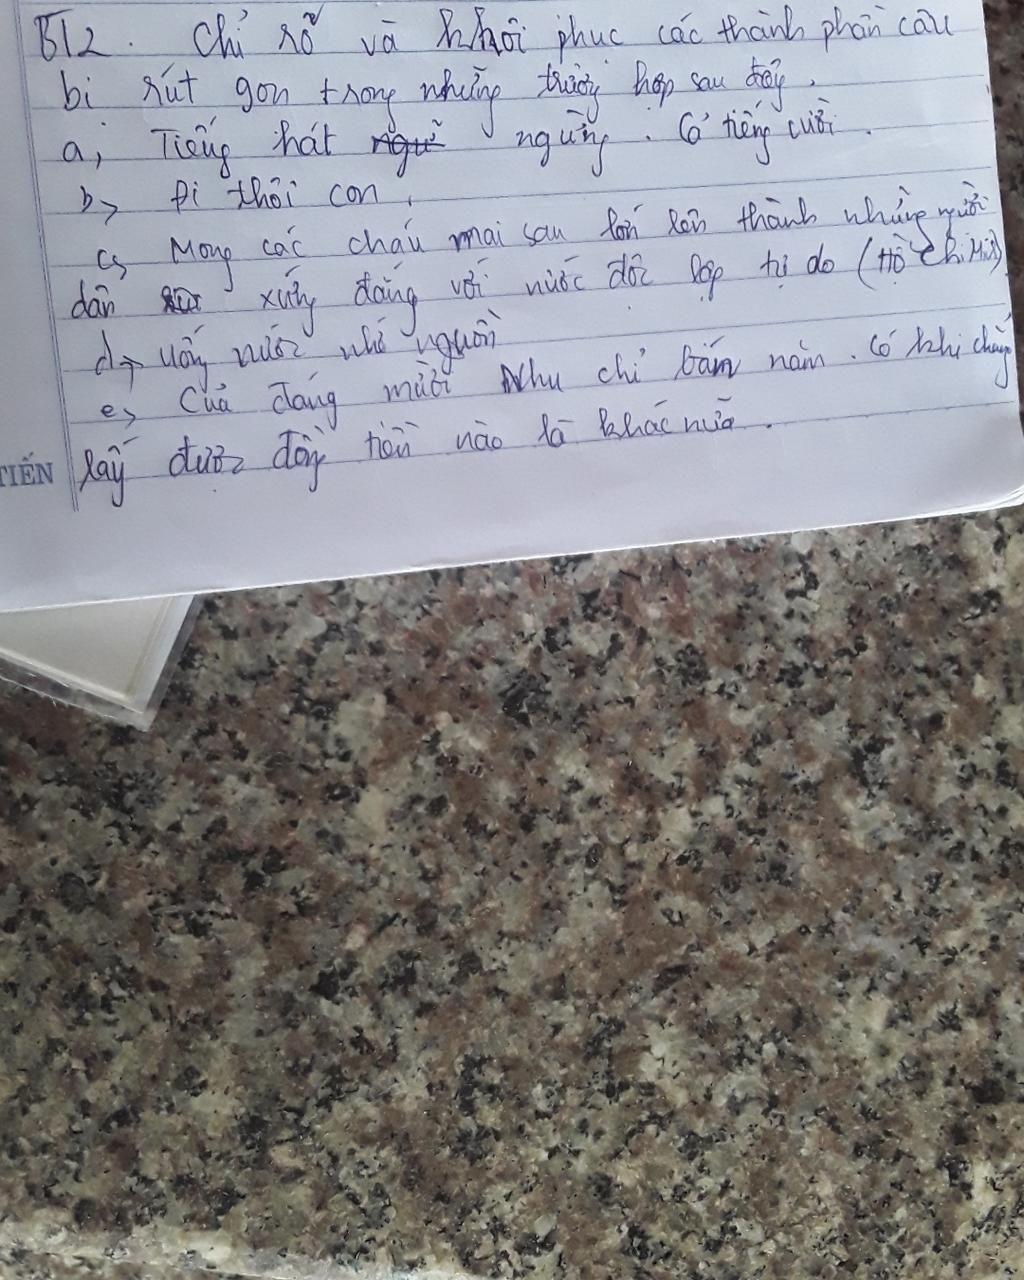 BT2. Chỉ rõ và khôi phục các thành phần câu
bị rút gọn trong những trường hợp sau đây.
a, Tiếng hát ngừng. Cả tiếng cười.
b, Đi thôi con.
c, Mong các cháu mai sau lớn lên thành những người
dân xứng đáng với nước độc lập tự do (Hồ Chí Minh)
d, uống nước nhớ nguồn
e, Của đáng mười Nhu chỉ bán năm. Có khi chẳng
TIẾN lấy được đồng tiền nào là khác nữa.